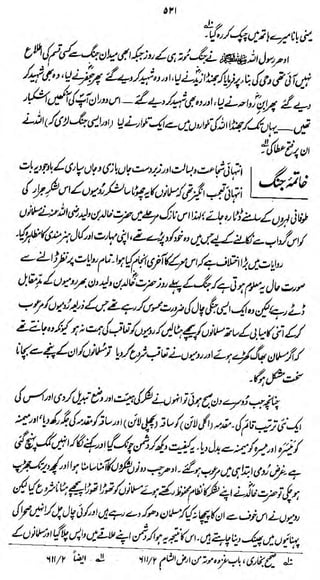 ۵۳۱
یمنی بانا میرے ہاتھ میں چپک کر رہ گیا۔
ادھر رسول اللہ ﷺ نے جنگ موتہ ہی کے روز جبکہ ابھی میدانِ جنگ سے کسی قسم کی اطلاع
نہیں آئی تھی وحی کی بناء پر فرمایا کہ جھنڈا زیدؓ نے لیا، اور وہ شہید کر دیے گئے پھر جعفرؓ نے لیا، وہ بھی شہید کر
دیے گئے پھر ابنِ رواحہؓ نے لیا، اور وہ بھی شہید کر دیے گئے — اس دوران آپؐ کی آنکھیں اشکبار
تھیں — یہاں تک کہ جھنڈا اللہ کی تلواروں میں سے ایک تلوار نے لیا (اور ایسی جنگ لڑی کہ) اللہ نے
ان پر فتح عطا کی۔
خاتمۂ جنگ
انتہائی شجاعت و بسالت اور زبردست جاں بازی و جاں سپاری کے باوجود یہ بات
انتہائی تعجب انگیز تھی کہ مسلمانوں کا یہ چھوٹا سا لشکر رومیوں کے اس لشکرِ جرار کی
طوفانی لہروں کے سامنے ڈٹا رہ جائے؛ لہٰذا اس نازک مرحلے میں حضرت خالد بن ولید رضی اللہ عنہ نے مسلمانوں
کو اس گرداب سے نکالنے کے لیے جس میں وہ خود کود پڑے تھے، اپنی مہارت اور کمالِ ہنرمندی کا مظاہرہ کیا۔
روایات میں بڑا اختلاف ہے کہ اس معرکے کا آخری انجام کیا ہوا۔ تمام روایات پر نظر ڈالنے سے
صورت حال یہ معلوم ہوتی ہے کہ جنگ کے پہلے روز حضرت خالد بن ولید دن بھر رومیوں کے مدِ مقابل
ڈٹے رہے لیکن وہ ایک ایسی جنگی چال کی ضرورت محسوس کر رہے تھے جس کے ذریعہ رومیوں کو مرعوب کر
کے اتنی کامیابی کے ساتھ مسلمانوں کو پیچھے ہٹا لیں کہ رومیوں کو تعاقب کی ہمت نہ ہو کیونکہ وہ جانتے تھے
کہ اگر مسلمان بھاگ کھڑے ہوئے اور رومیوں نے تعاقب شروع کر دیا تو مسلمانوں کو ان کے پنجے سے بچانا
سخت مشکل ہوگا۔
چنانچہ جب دوسرے دن صبح ہوئی تو انہوں نے لشکر کی ہیئت اور وضع تبدیل کر دی اور اس کی
ایک نئی ترتیب قائم کی۔ مقدمہ (اگلی لائن) کو ساقہ (پچھلی لائن) اور ساقہ کو مقدمہ کی جگہ رکھ دیا، اور میمنہ
کو میسرہ اور میسرہ کو میمنہ سے بدل دیا۔ یہ کیفیت دیکھ کر دشمن چونک گیا اور کہنے لگا کہ انہیں کمک پہنچ گئی
ہے غرض رومی ابتدا ہی میں مرعوب ہو گئے۔ ادھر جب دونوں لشکروں کا آمنا سامنا ہوا اور کچھ دیر تک جھڑپ
ہو چکی تو حضرت خالدؓ نے اپنے لشکر کا نظام محفوظ رکھتے ہوئے مسلمانوں کو تھوڑا تھوڑا پیچھے ہٹانا شروع کیا لیکن
رومیوں نے اس خوف سے ان کا پیچھا نہ کیا کہ مسلمان دھوکا دے رہے ہیں اور کوئی چال چل کر انہیں صحرا کی
پہنائیوں میں پھینک دینا چاہتے ہیں۔ اس کا نتیجہ یہ ہوا کہ دشمن اپنے علاقے میں واپس چلا گیا اور مسلمانوں کے
صحیح بخاری، باب غزوہ موتہ من ارض الشام ۲/۶۱۱ ایضاً ۲/۶۱۱